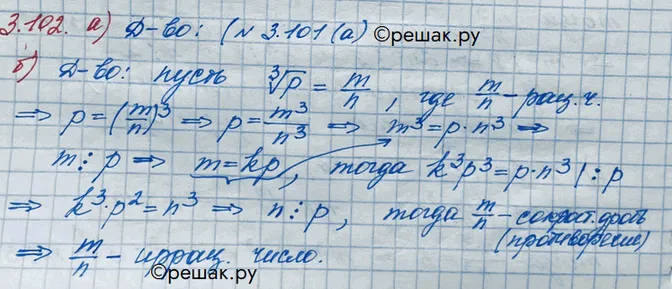 3.102. а) Д-во: (N 3.101(а) ©решак.ру
б) Д-во: пусть ∛p = m/n, где m/n – рац. ч.
⇒ p = (m/n)³ ⇒ p = m³/n³ ⇒ m³ = p · n³ ⇒
m ⋮ p ⇒ m = kp, тогда k³p³ = p · n³ | : p
⇒ k³ · p² = n³ ⇒ n ⋮ p, тогда m/n – сократ. дробь
(противоречие)
⇒ m/n – иррац. число.
©решак.ру